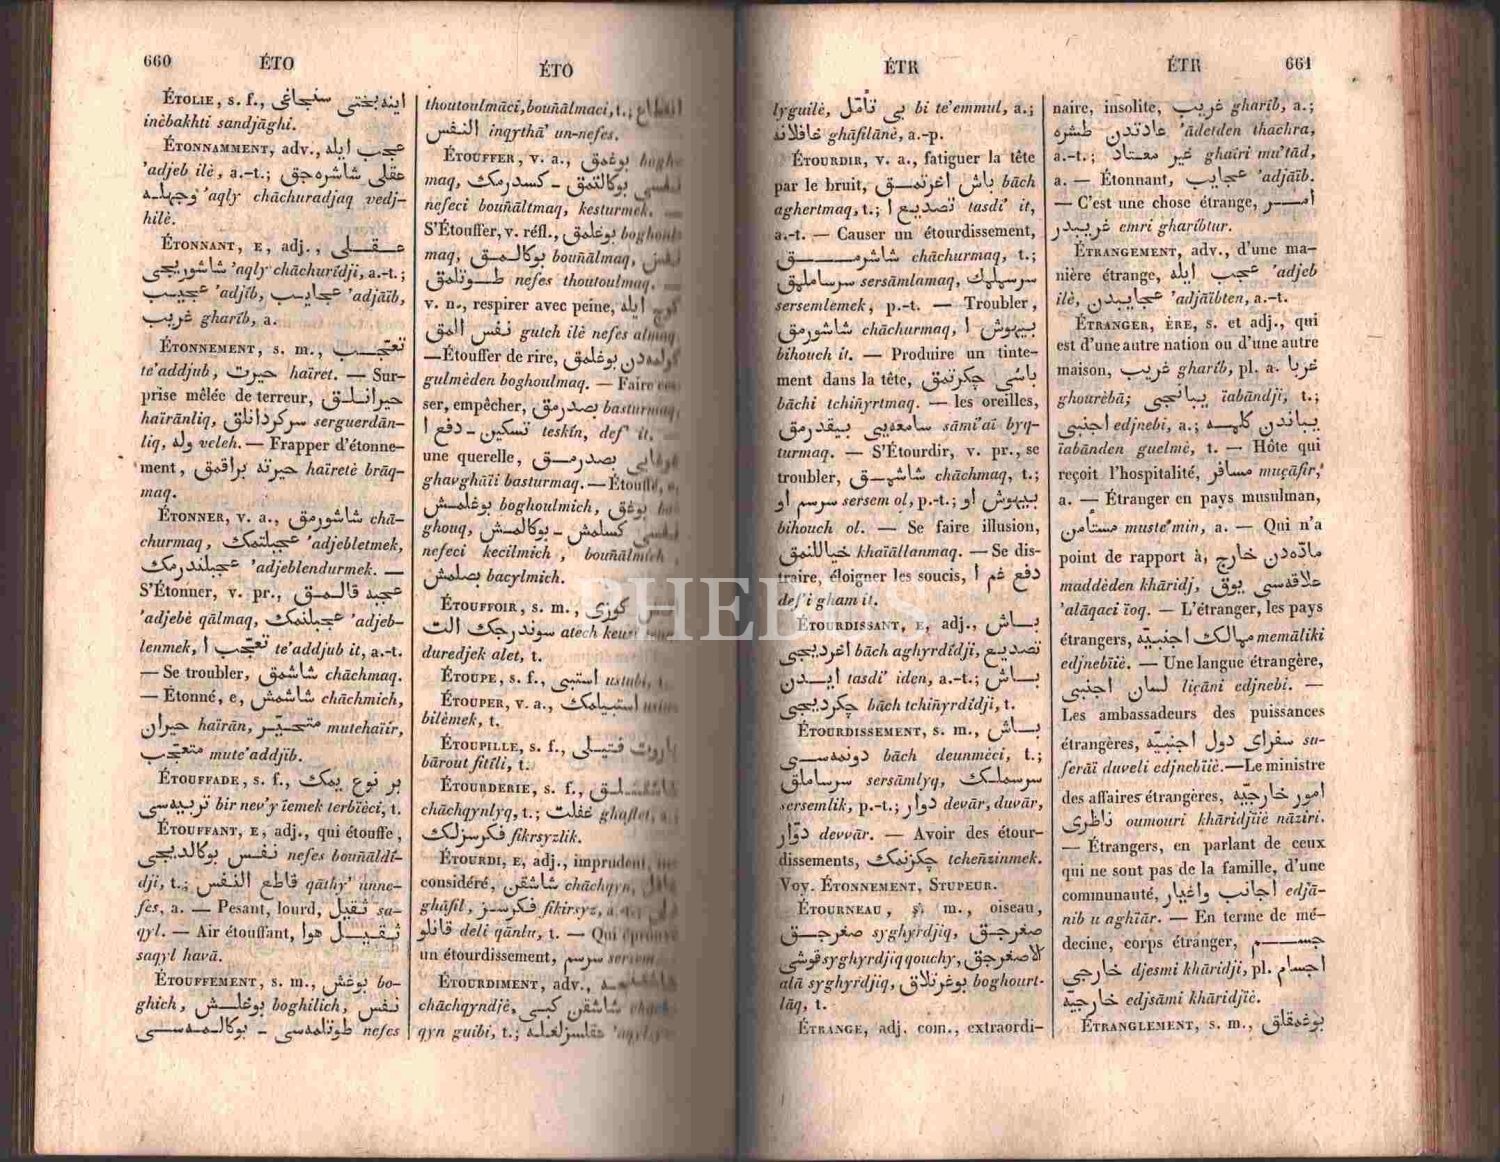 660 ÉTO ÉTO
ÉTOLIE, s. f., اینه بختی سنجاغی
inèbakhti sandjāghi.
ÉTONNAMMENT, adv., عجب ایله
'adjeb ilè, a.-t.; عقلی شاشره جق
'aqly chāchuradjaq vedj-
hilè.
ÉTONNANT, E, adj., عقلی
شاشوریجی 'aqly chāchurídji, a.-t.;
عجیب 'adjíb, عجایب 'adjāïb,
غریب gharíb, a.
ÉTONNEMENT, s. m., تعجّب
te'addjub, حیرت haïret. — Sur-
prise mêlée de terreur, حیرانلق
haïrānliq, سرکردانلق serguerdān-
liq, وله veleh. — Frapper d'étonne-
ment, حیرته براقمق haïretè brāq-
maq.
ÉTONNER, v. a., شاشورمق chā-
churmaq, عجبلتمک 'adjebletmek,
عجبلندرمک 'adjeblendurmek. —
S'Étonner, v. pr., عجبه قالمق
'adjebè qālmaq, عجبلنمک 'adjeb-
lenmek, تعجّب ا te'addjub it, a.-t.
— Se troubler, شاشمق chāchmaq.
— Étonné, e, شاشمش chāchmich,
حیران haïrān, متحیّر mutehaïír,
متعجّب mute'addjib.
ÉTOUFFADE, s. f., بر نوع یمک
تربیه‌سی bir nev'y ïemek terbïèci, t.
ÉTOUFFANT, E, adj., qui étouffe,
نفس بوکالدیجی nefes bouñāldí-
dji, t.; قاطع النفس qāthy' unne-
fes, a. — Pesant, lourd, ثقیل sa-
qyl. — Air étouffant, ثقیل هوا
saqyl havā.
ÉTOUFFEMENT, s. m., بوغش bo-
ghich, بوغلش boghilich, نفس
طوتلمه‌سی - بوکالمه‌سی nefes
thoutoulmāci, bouñālmaci, t.;
النفس inqythā' un-nefes.
ÉTOUFFER, v. a., بوغمق
maq, بوکالتمق - کسدرمک
nefeci bouñāltmaq, kesturmek. —
S'Étouffer, v. réfl., بوغلمق boghoul-
maq, بوکالمق bouñālmaq,
طوتلمق nefes thoutoulmaq. —
v. n., respirer avec peine, ایله
نفس المق gutch ilè nefes almaq.
—Étouffer de rire, بوغلمق
gulmèden boghoulmaq. — Faire ces-
ser, empêcher, بصدرمق basturmaq,
تسکین - دفع ا teskín, def' it.
une querelle, بصدرمق
ghavghāïi basturmaq.—Étouffé, e,
بوغلمش boghoulmich, بوغق bo-
ghouq, کسلمش - بوکالمش
nefeci kecilmich, bouñālmich
بصلمش bacylmich.
ÉTOUFFOIR, s. m.,
سوندرجک الت atech
duredjek alet, t.
ÉTOUPE, s. f., استپی ustubi, t.
ÉTOUPER, v. a., استپیلمک
bilèmek, t.
ÉTOUPILLE, s. f., باروت فتیلی
bārout fitíli, t.
ÉTOURDERIE, s. f.,
chāchqynlyq, t.; غفلت ghaflet, a.;
فکرسزلک fikrsyzlik.
ÉTOURDI, E, adj., imprudent, in-
considéré, شاشقن chāchqyn,
ghāfil, فکرسز fikirsyz,
قانلو deli qānlu, t. — Qui éprouve
un étourdissement, سرسم sersem.
ÉTOURDIMENT, adv.,
chāchqyndjè, شاشقن کبی
qyn guibi, t.; عقلسزلغله
ÉTR ÉTR 661
lyguilè, بی تأمّل bi te'emmul, a.;
غافلانه ghāfilānè, a.-p.
ÉTOURDIR, v. a., fatiguer la tête
par le bruit, باش اغرتمق bāch
aghertmaq, t.; تصدیع ا tasdi' it,
a.-t. — Causer un étourdissement,
شاشرمق chāchurmaq, t.;
سرساملمق sersāmlamaq, سرسملمک
sersemlemek, p.-t. — Troubler,
شاشورمق chāchurmaq, بیهوش ا
bihouch it. — Produire un tinte-
ment dans la tête, باشی چکرتمق
bāchi tchiñyrtmaq. — les oreilles,
سامعه‌یی بیقدرمق sāmi'aï byq-
turmaq. — S'Étourdir, v. pr., se
troubler, شاشمق chāchmaq, t.;
سرسم او sersem ol, p.-t.; بیهوش او
bihouch ol. — Se faire illusion,
خیاللنمق khaïāllanmaq. — Se dis-
traire, éloigner les soucis, دفع غم ا
def'i gham it.
ÉTOURDISSANT, E, adj., باش
اغردیجی bāch aghyrdídji, تصدیع
ایدن tasdi' iden, a.-t.; باش
چکردیجی bāch tchiñyrdídji, t.
ÉTOURDISSEMENT, s. m., باش
دونمه‌سی bāch deunmèci, t.;
سرساملق sersāmlyq, سرسملک
sersemlik, p.-t.; دوار devār, duvār,
دوّار devvār. — Avoir des étour-
dissements, چکزنمک tcheñzinmek.
Voy. ÉTONNEMENT, STUPEUR.
ÉTOURNEAU, s. m., oiseau,
صغرجق syghyrdjiq, صغرجق
قوشی syghyrdjiq qouchy, الاصغرجق
alā syghyrdjiq, بوغرتلاق boghourt-
lāq, t.
ÉTRANGE, adj. com., extraordi-
naire, insolite, غریب gharíb, a.;
عادتدن طشره 'ādetden thachra,
a.-t.; غیر معتاد ghaïri mu'tād,
a. — Étonnant, عجایب 'adjāïb.
— C'est une chose étrange, امر
غریبدر emri gharíbtur.
ÉTRANGEMENT, adv., d'une ma-
nière étrange, عجب ایله 'adjeb
ilè, عجایبدن 'adjāïbten, a.-t.
ÉTRANGER, ÈRE, s. et adj., qui
est d'une autre nation ou d'une autre
maison, غریب gharíb, pl. a. غربا
ghourèbā; یبانجی ïabāndji, t.;
اجنبی edjnebi, a.; یباندن کلمه
ïabānden guelmè, t. — Hôte qui
reçoit l'hospitalité, مسافر muçāfir,
a. — Étranger en pays musulman,
مستأمن muste'min, a. — Qui n'a
point de rapport à, مادّه‌دن خارج
maddèden khāridj, علاقه‌سی یوق
'alāqaci ïoq. — L'étranger, les pays
étrangers, ممالک اجنبیّه memāliki
edjnebïïè. — Une langue étrangère,
لسان اجنبی liçāni edjnebi. —
Les ambassadeurs des puissances
étrangères, سفرای دول اجنبیّه su-
feraï duveli edjnebïïè.—Le ministre
des affaires étrangères, امور خارجیّه
ناظری oumouri khāridjïïè nāziri.
— Étrangers, en parlant de ceux
qui ne sont pas de la famille, d'une
communauté, اجانب واغیار edjā-
nib u aghïār. — En terme de mé-
decine, corps étranger, جسم
خارجی djesmi khāridji, pl. اجسام
خارجیّه edjsāmi khāridjïè.
ÉTRANGLEMENT, s. m., بوغمقلق
PHEBUS